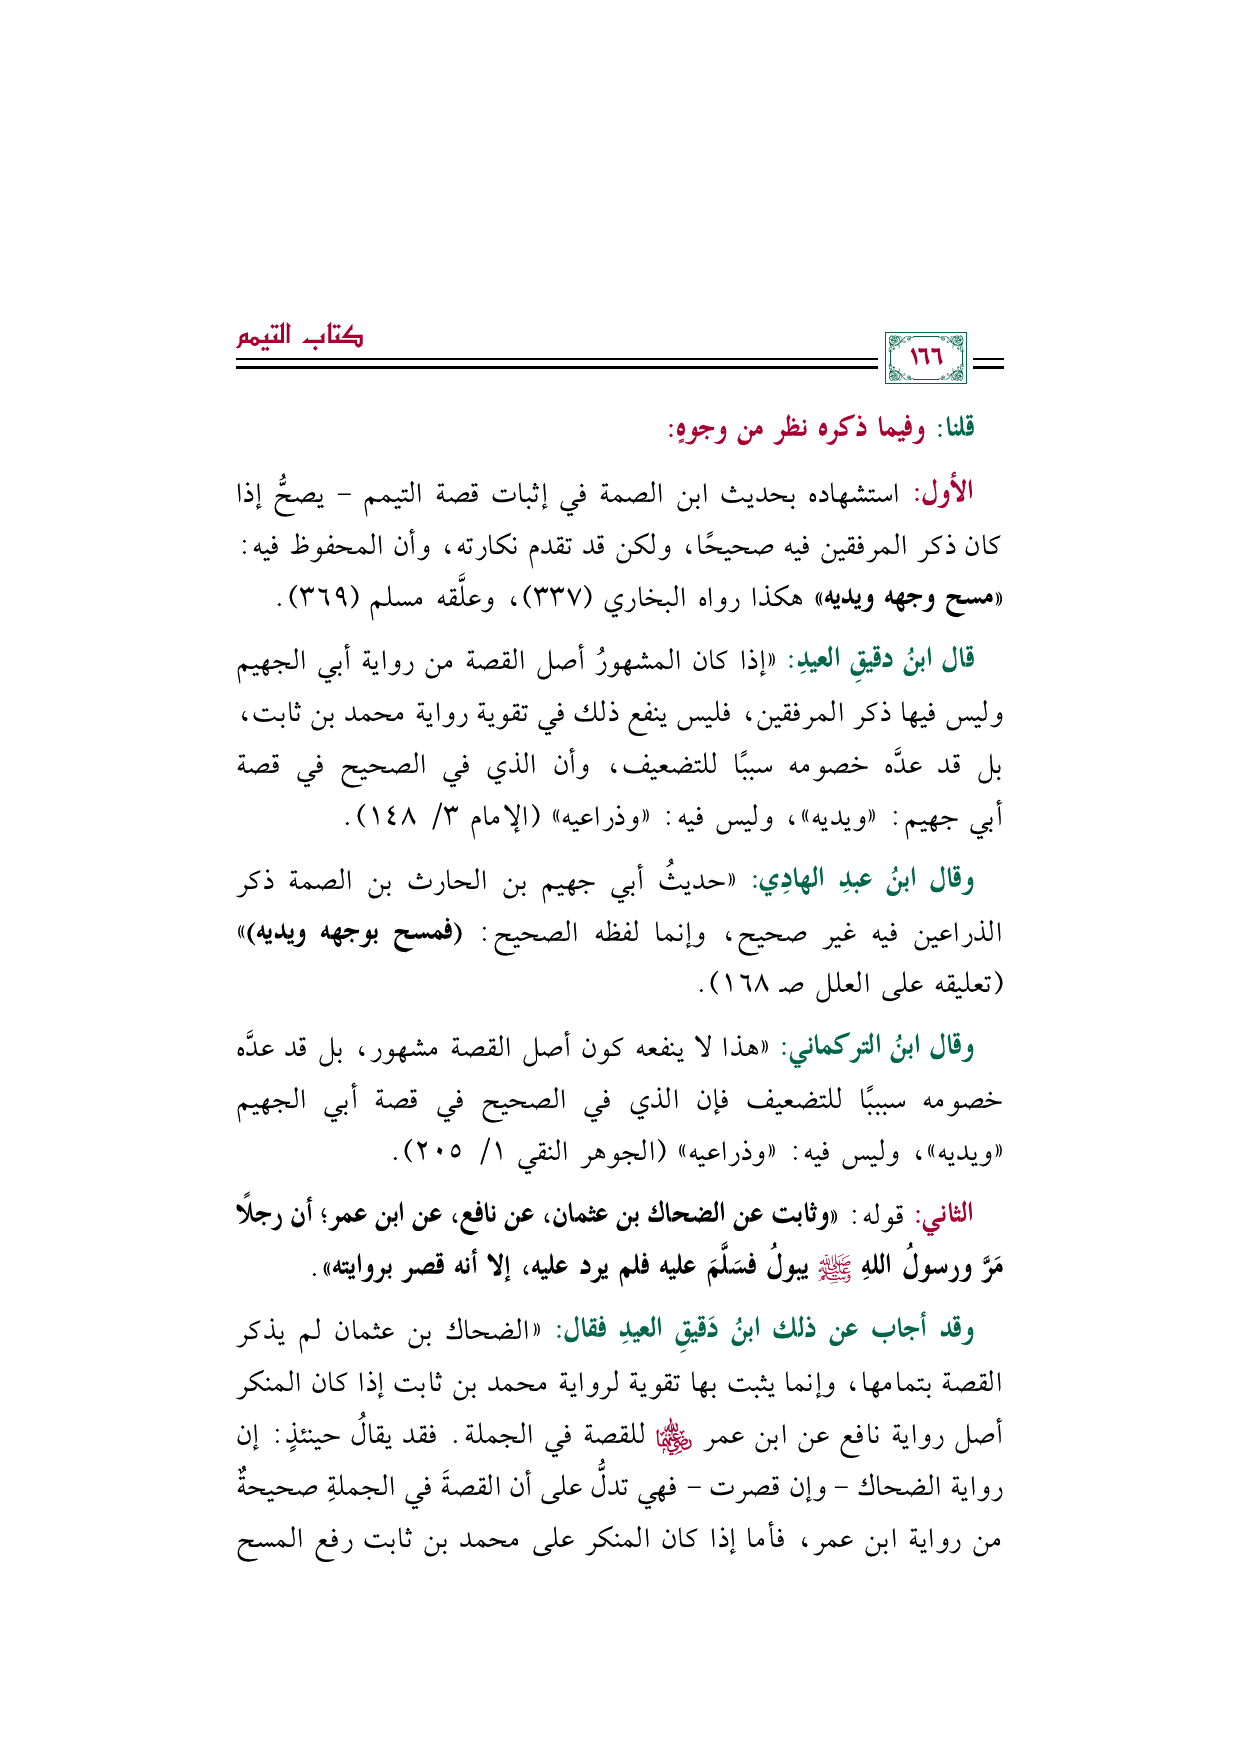 كتاب التيمم
١٦٦
قلنا: وفيما ذكره نظر من وجوهٍ:
الأول: استشهاده بحديث ابن الصمة في إثبات قصة التيمم – يصحُّ إذا
كان ذكر المرفقين فيه صحيحًا، ولكن قد تقدم نكارته، وأن المحفوظ فيه:
«مسح وجهه ويديه» هكذا رواه البخاري (٣٣٧)، وعلَّقه مسلم (٣٦٩).
قال ابنُ دقيقِ العيدِ: «إذا كان المشهورُ أصل القصة من رواية أبي الجهيم
وليس فيها ذكر المرفقين، فليس ينفع ذلك في تقوية رواية محمد بن ثابت،
بل قد عدَّه خصومه سببًا للتضعيف، وأن الذي في الصحيح في قصة
أبي جهيم: «ويديه»، وليس فيه: «وذراعيه» (الإمام ٣/ ١٤٨).
وقال ابنُ عبدِ الهادِي: «حديثُ أبي جهيم بن الحارث بن الصمة ذكر
الذراعين فيه غير صحيح، وإنما لفظه الصحيح: (فمسح بوجهه ويديه)»
(تعليقه على العلل صـ ١٦٨).
وقال ابنُ التركماني: «هذا لا ينفعه كون أصل القصة مشهور، بل قد عدَّه
خصومه سبببًا للتضعيف فإن الذي في الصحيح في قصة أبي الجهيم
«ويديه»، وليس فيه: «وذراعيه» (الجوهر النقي ١/ ٢٠٥).
الثاني: قوله: «وثابت عن الضحاك بن عثمان، عن نافع، عن ابن عمر؛ أن رجلًا
مَرَّ ورسولُ اللهِ ﷺ يبولُ فسَلَّمَ عليه فلم يرد عليه، إلا أنه قصر بروايته».
وقد أجاب عن ذلك ابنُ دَقيقِ العيدِ فقال: «الضحاك بن عثمان لم يذكر
القصة بتمامها، وإنما يثبت بها تقوية لرواية محمد بن ثابت إذا كان المنكر
أصل رواية نافع عن ابن عمر رضي الله عنهما للقصة في الجملة. فقد يقالُ حينئذٍ: إن
رواية الضحاك – وإن قصرت – فهي تدلُّ على أن القصةَ في الجملةِ صحيحةٌ
من رواية ابن عمر، فأما إذا كان المنكر على محمد بن ثابت رفع المسح